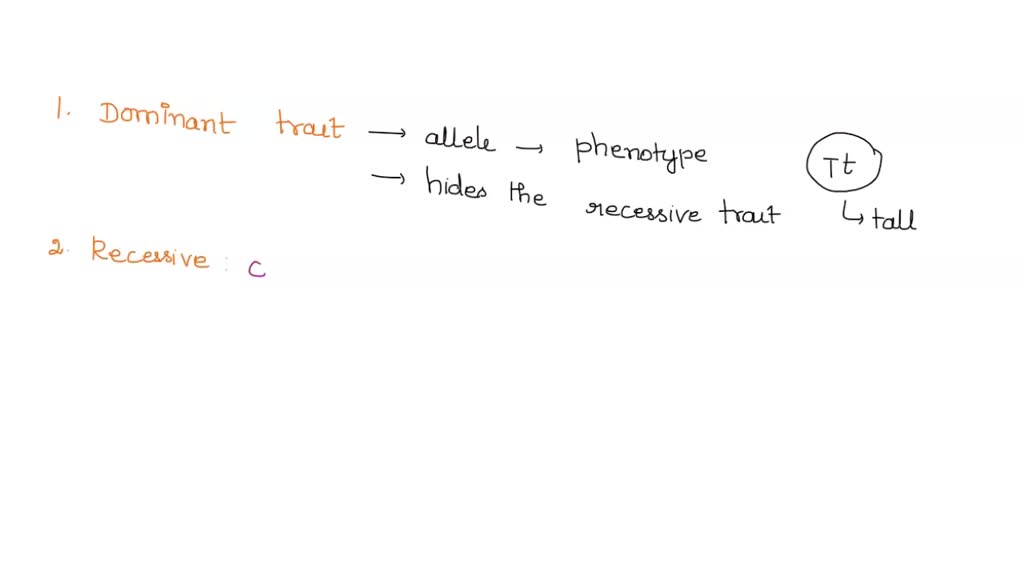 1. Dominant trait → allele → phenotype
→ hides the recessive trait
Tt
↳ tall
2. Recessive : C